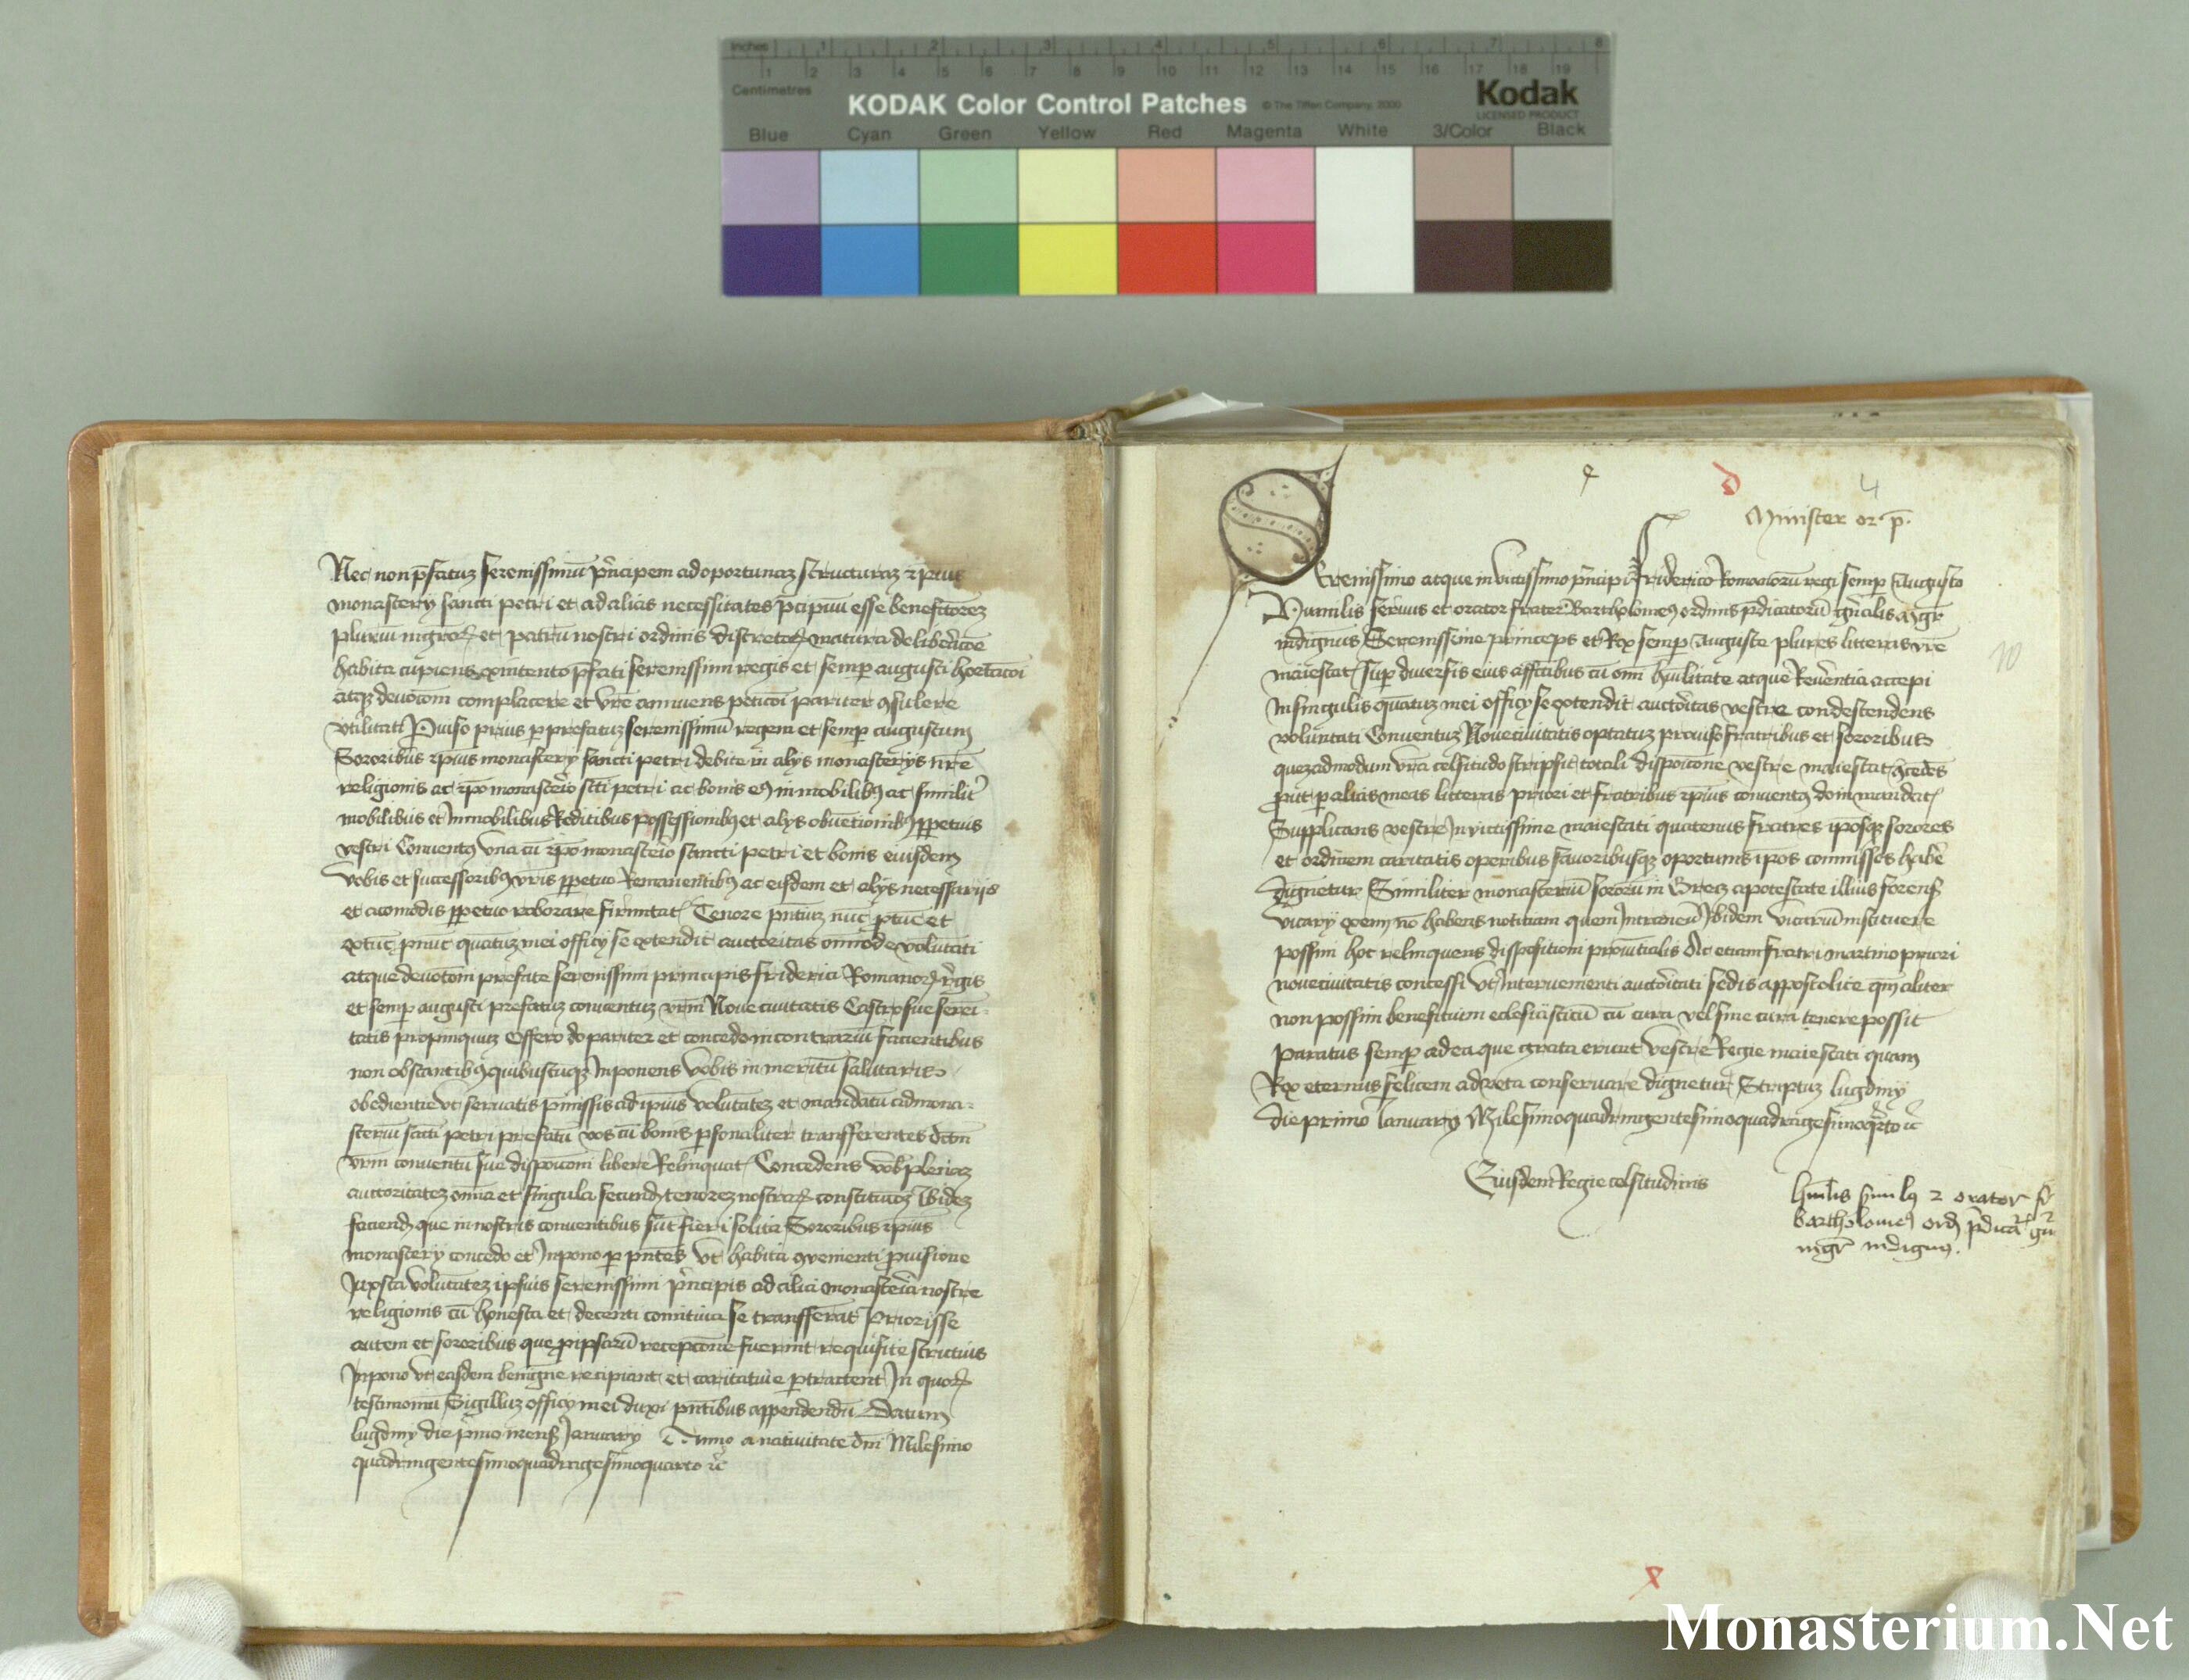 Inches 1 2 3 4 5 6 7 8
1 2 3 4 5 6 7 8 9 10 11 12 13 14 15 16 17 18 19
Centimetres
KODAK Color Control Patches © The Tiffen Company, 2000 Kodak
LICENSED PRODUCT
Blue Cyan Green Yellow Red Magenta White 3/Color Black
Nec non pfatuz serenissimū pncipem ad oportunaz structuraz ipius
monastery sancti petri et ad alias necessitates pcipuū esse benefctorez
pluriū mgror et patrū nostri ordinis discretor matura deliberacōe
habita cupiens exintento pfati serenissimi regis et semp augusti hortacōi
atqz deuocōni complacere et vre annuens peticōi pariter gsulere
vtilitati Puiso prius p prefatuz serenissimū regem et semp augustum
Sororibus ipius monastery sancti petri debite in alys monasterys nre
religionis ac ipo monasterio scti petri ac bonis eiq immobilibq ac similit
mobilibus et Immobilibus Redditibus possessionibq et alys obuetionibq ppetuis
vestri Conuentq vna cū ipo monasterio sancti petri et bonis eiusdem
vobis et successoribq vris ppetuo Remanentibq ac eisdem et alys necessarijs
et acomodis ppetuo roborare firmitat Tenore pntiuz nuc ptuc et
extuc pnuc quatuz mei officy se extendit auctoritas omode volutati
atque deuotōni prefate serenissimi principis friderici Romanor rgis
et semp augusti prefatuz conuentuz vrm Noue ciuitatis Castro sue sereni-
tatis propinquuz Offero do pariter et concedo in contrariū facientibus
non obstantibq quibuscuqz Inponens vobis in meritū salutaris
obedientie vt seruatis pmissis ad ipius volutatez et mandatū ad mona-
steriū sacti petri prefatū vos cū bonis psonaliter transfferentes dctm
vrm conuentū sue disposicōni libere Relinquat Concedens vob plenaz
auctoritatez omia et singula secundz tenorez nostrar constitucoz ibidez
faciendz que in nostris conuentibus sūt fieri solita Sororibus ipius
monastery concedo et Inpono p pntes vt habita gvenienti prouisione
Juxsta volutatez ipsius serenissimi pncipis ad alia monasteria nostre
religionis cū honesta et decenti comitiua se transfferat Priorisse
autem et sororibus que p ipsarū recepcōne fuerint requisite strictius
Inpono vt easdem benigne recipiant et caritatiue ptractent In quor
testimoniū Sigilluz officy mei duxi pntibus appendendū Datum
lugdiny die pmo mens January Anno a natiuitate dni Milesimo
quadringentesimoquadragesimoquarto ec
e d 4
Minister or p.
Serenissimo atque inuictissimo pncipi friderico Romanorū regi semp Augusto
Humilis seruus et orator frater Bartholomeq ordinis pdicatorū gnralis mgr
indignus Serenissime princeps et Rex semp Auguste plures litteras vre
maiestat sup diuersis eius affctibus cū omi humilitate atque Reuerentia accepi
In singulis quatuz mei officy se extendit auctoritas vestre condescendens
voluntati Conuentuz Noueciuitatis optatuz prouiso fratribus et sororibus
quezadmodum vra celsitudo scripsit totali disposicōne vestre maiestat gcedēs
put p alias meas litteras priori et fratribus ipius conuentq do in mandat
Supplicans vestre Inuictissime maiestati quatenus fratres iposqz sorores
et ordinem caritatis operibus fauoribusqz oportunis ipos commissos habe
Dignetur Similiter monasteriū sororū in Grecz a potestate illius forens
vicary exemi no habens notitiam quem Intraneū Ibidem vicariū instituere
possim hoc relinquens dispositioni prouincialis Ac etiam fratri martino priori
noueciuitatis concessi vt Interuenienti auctoritati sedis appostolice qm aliter
non possim benefitium eclesiasticū cū cura vel sine cura tenere possit
paratus semp ad ea que grata erunt vestre Regie maiestati quam
Rex eternus felicem ad vota conseruare dignetur Scriptuz lugdiny
die primo Ianuary Milesimoquadringentesimoquadragesimoqrto ec
Eiusdem Regie celsitudinis
humlis simlq 2 orator fr
bartholomeq ord pdicat gn
mgr indignq.
10
x
Monasterium.Net